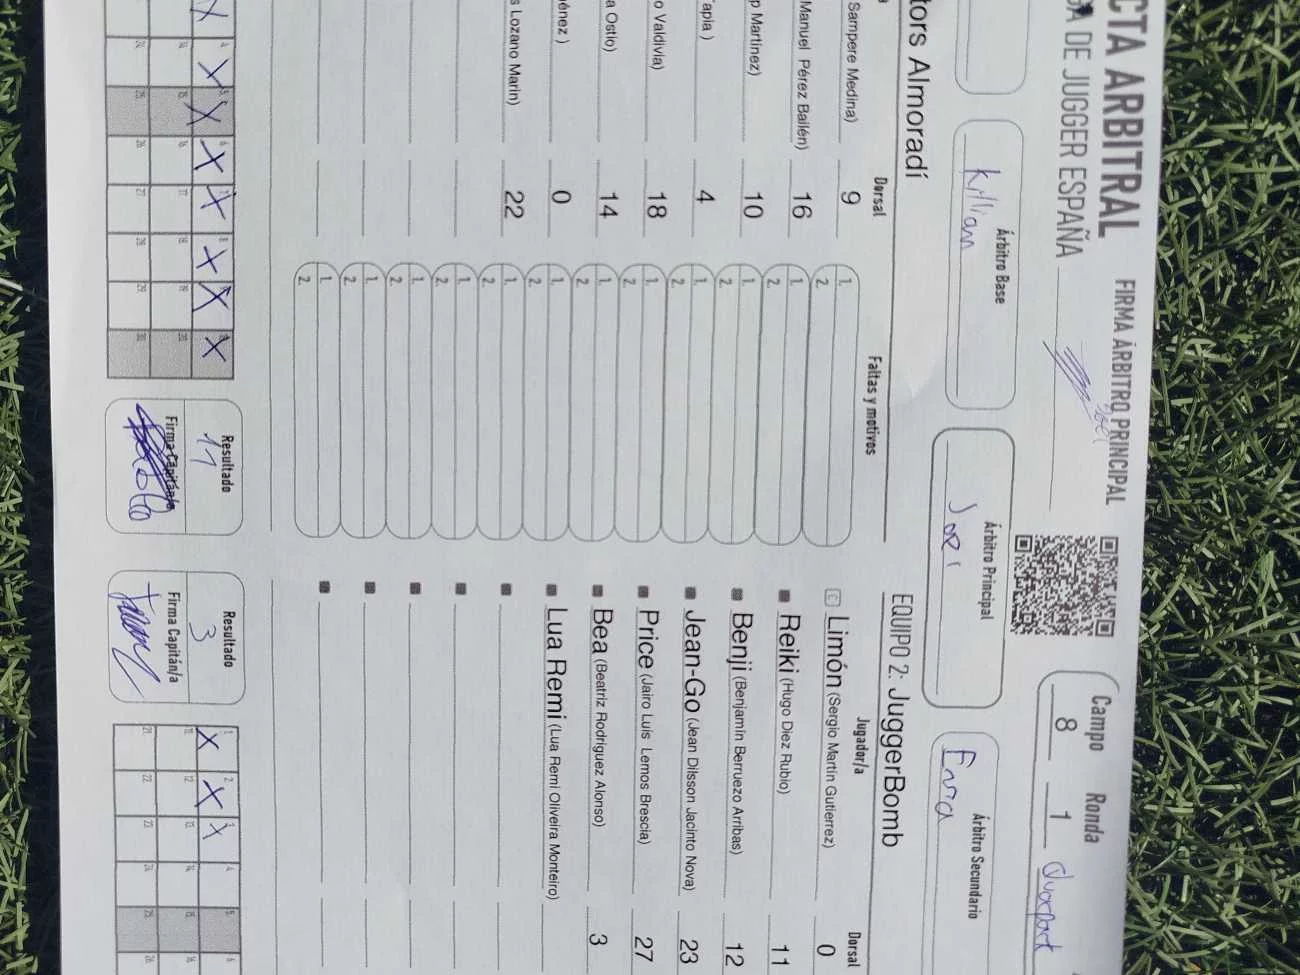 CTA ARBITRAL
A DE JUGGER ESPAÑA
FIRMA ÁRBITRO PRINCIPAL
Campo Ronda
8 1
Árbitro Base
Killian
Árbitro Principal
Árbitro Secundario
tors Almoradí
Dorsal
Faltas y motivos
Sampere Medina) 9 1. 2.
Manuel Pérez Bailén) 16 1. 2.
p Martínez) 10 1. 2.
apia ) 4 1. 2.
o Valdivia) 18 1. 2.
a Ostio) 14 1. 2.
énez ) 0 1. 2.
s Lozano Marin) 22 1. 2.
1. 2.
1. 2.
1. 2.
1. 2.
EQUIPO 2: JuggerBomb
Jugador/a Dorsal
C Limón (Sergio Martin Gutierrez) 0
Reiki (Hugo Diez Rubio) 11
Benji (Benjamín Berruezo Arribas) 12
Jean-Go (Jean Dilsson Jacinto Nova) 23
Price (Jairo Luis Lemos Brescia) 27
Bea (Beatriz Rodríguez Alonso) 3
Lua Remi (Lua Remi Oliveira Monteiro)
Resultado
11
Firma Capitán/a
Resultado
3
Firma Capitán/a